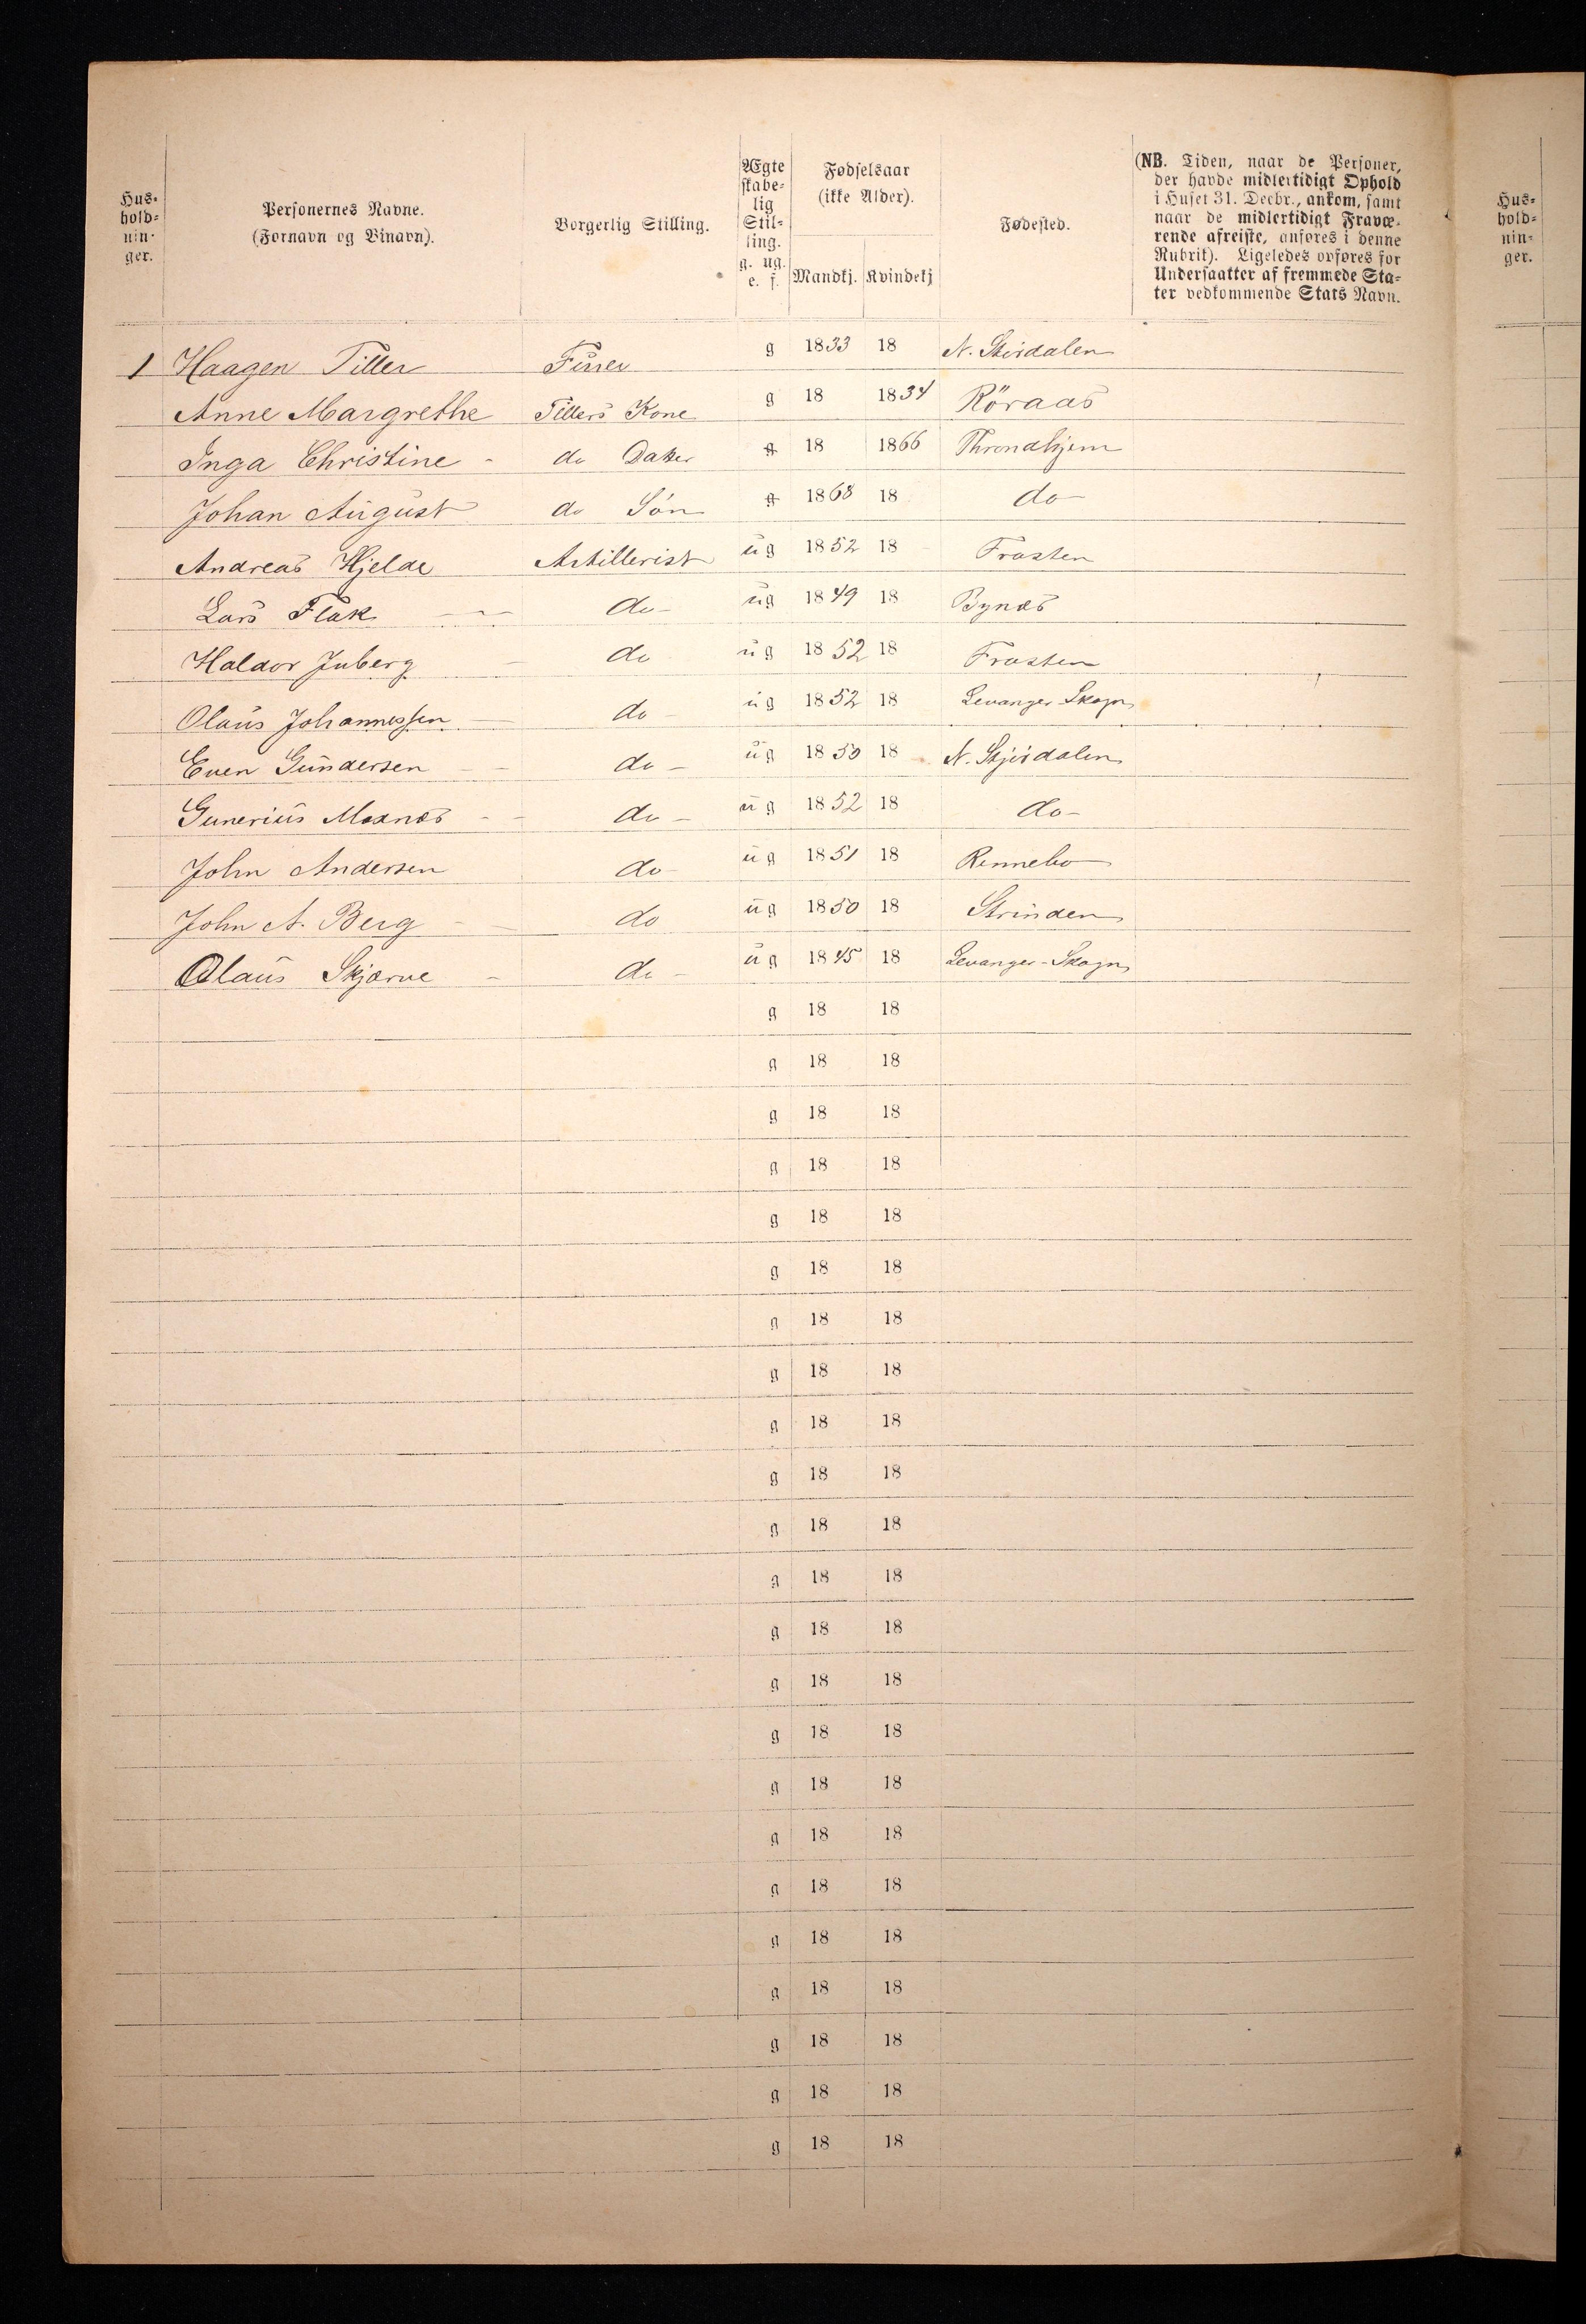 Hus-
hold-
nin-
ger.
Personernes Navne.
(Fornavn og Binavn).
Borgerlig Stilling.
Ægte
skabe-
lig
Stil-
ling.
g. ug.
e. f.
Fødselsaar
(ikke Alder).
Mandkj. Kvindekj
Fødested.
(NB. Tiden, naar de Personer,
der havde midlertidigt Ophold
i Huset 31. Decbr., ankom, samt
naar de midlertidigt Fravæ-
rende afreiste, anføres i denne
Rubrik). Ligeledes opføres for
Undersaatter af fremmede Sta-
ter vedkommende Stats Navn.
Hus-
hold-
nin-
ger.
1 Haagen Tiller Furer g 1833 18 N. Stordalen
Anne Margrethe Tillers Kone g 18 1834 Röraas
Inga Christine - do Datter g 18 1866 Throndhjem
Johan August do Søn g 1868 18 do
Andreas Hjelde Artillerist ug 1852 18 Frosten
Lars Flak do ug 1849 18 Bynæs
Haldor Juberg do ug 1852 18 Frosten
Olaus Johannessen do ug 1852 18 Levanger Skogn
Even Gundersen do ug 1850 18 N. Stjørdalen
Gunerius Moxnæs do ug 1852 18 do
John Andersen do ug 1851 18 Rennebo
John A. Berg do ug 1850 18 Strinden
Olaus Skjærve do ug 1845 18 Levanger-Skogn
g 18 18
g 18 18
g 18 18
g 18 18
g 18 18
g 18 18
g 18 18
g 18 18
g 18 18
g 18 18
g 18 18
g 18 18
g 18 18
g 18 18
g 18 18
g 18 18
g 18 18
g 18 18
g 18 18
g 18 18
g 18 18
g 18 18
g 18 18